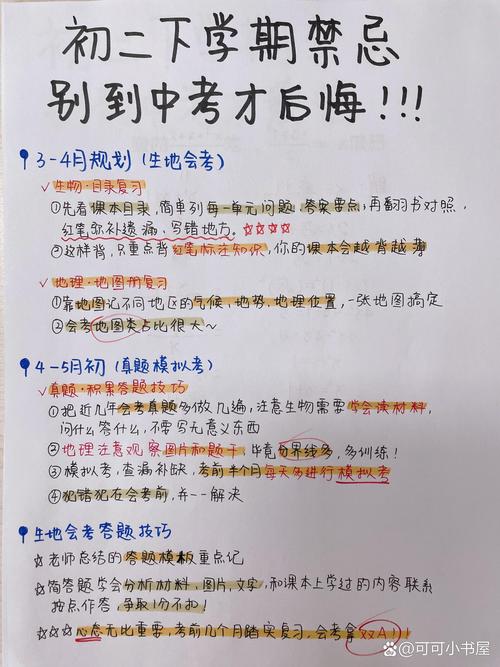 初二下学期禁忌
别到中考才后悔!!!
3-4月规划(生地会考)
✓生物·目录复习
①先看课本目录,简单列每一单元问题、答案要点,再翻书对照,
红笔弥补遗漏,写错地方。☆☆☆☆
②这样背,只重点背红笔标注知识,你的课本会越背越薄
✓地理·地图册复习
①靠地图记不同地区的气候,地势,地理位置,一张地图搞定
②会考地图类占比很大~
4-5月初(真题模拟考)
✓真题·积累答题技巧
①把近几年会考真题多做几遍,注意生物需要学会读材料,
问什么答什么,不要写无意义东西
②地理注意观察图片和题干,毕竟分界线多,多训练!
③模拟考,查漏补缺,考前半个月每天多进行模拟考
④犯错犯在会考前,并一一解决
生地会考答题技巧
☆老师总结的答题模板重点记
☆简答题学会分析材料,图片,文字,和课本上学过的内容联系
按点作答,争取1分不扣!
☆☆☆心态无比重要,考前几个月踏实复习,会考拿双A!!
知乎 @可可小书屋